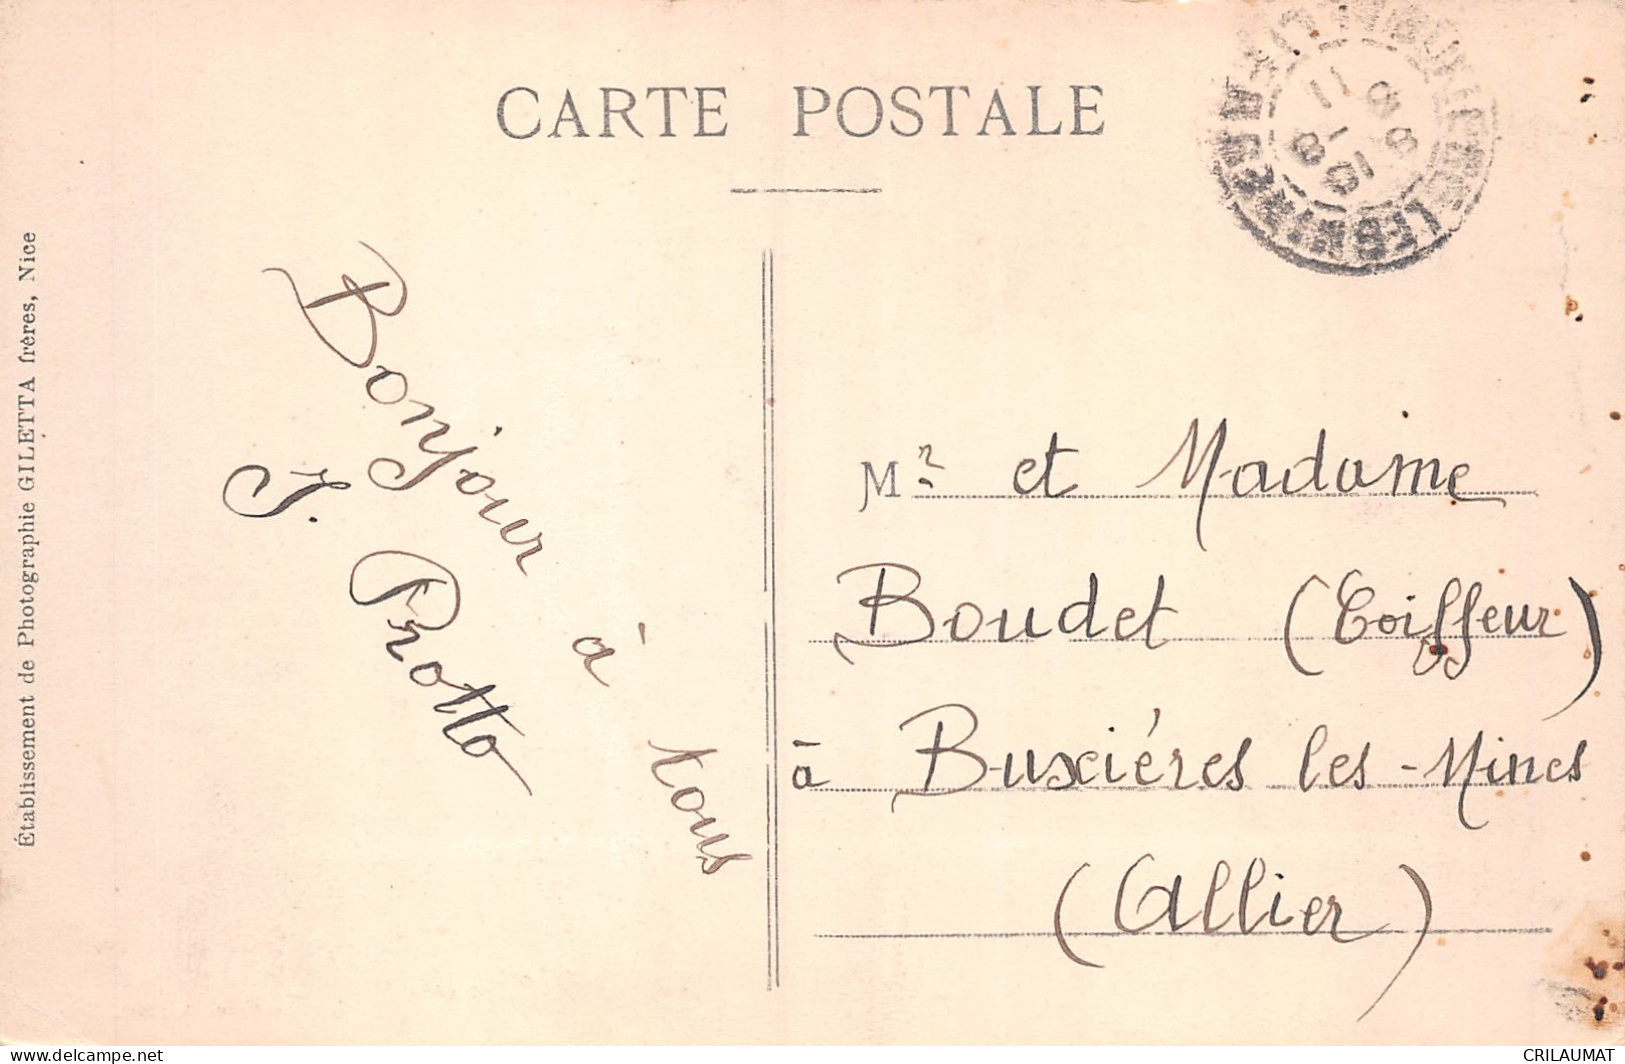 CARTE POSTALE
Établissement de Photographie GILETTA frères, Nice
Bonjour à tous
J. Protto
Mr et Madame
Boudet (Coiffeur)
à Buxiéres les-Mines
(Allier)
delcampe.net
CRILAUMAT